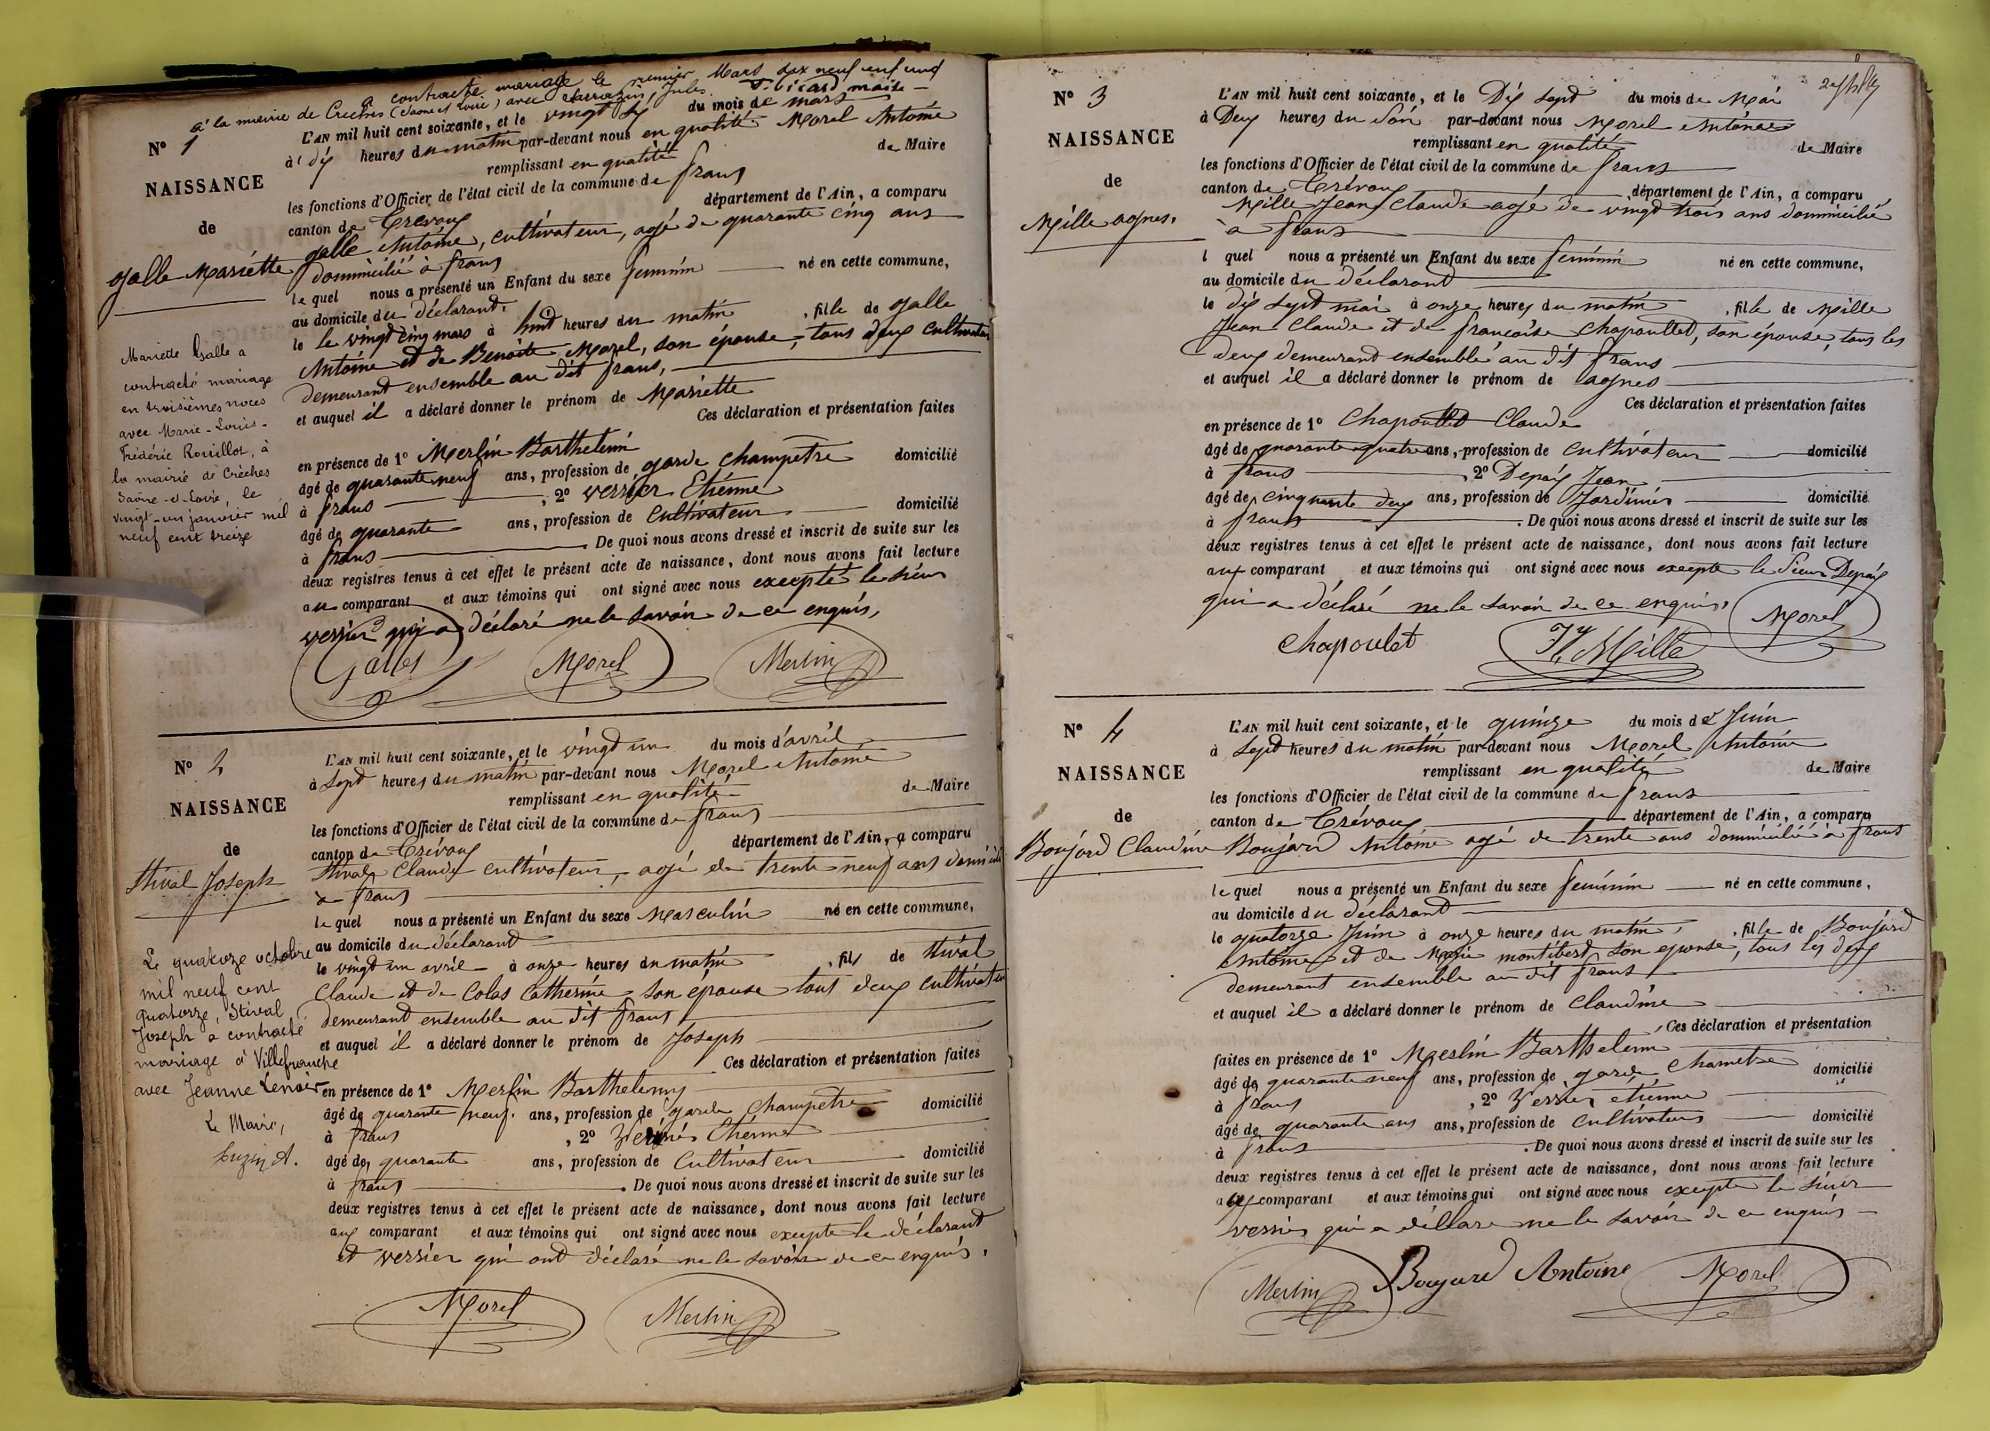 a contracté mariage le premier Mars dix neuf cent
à la mairie de Crèches (Saône et Loire) avec Jules
N° 1
NAISSANCE
de
Galle Mariette
L'AN mil huit cent soixante, et le vingt six du mois de mars
à dix heures du matin par-devant nous en qualité Morel Antoine
remplissant en qualité de Maire
les fonctions d'Officier de l'état civil de la commune de frans
canton de Trévoux département de l'Ain, a comparu
galle Antoine, cultivateur, agé de quarante cinq ans
domicilié à frans
le quel nous a présenté un Enfant du sexe feminin né en cette commune,
au domicile du déclarant,
le le vingt cinq mars à huit heures du matin, fille de galle
Antoine et de Benoite Morel, son épouse, tous deux cultivateurs
demeurant ensemble au dit frans,
et auquel il a déclaré donner le prénom de Mariette
Ces déclaration et présentation faites
en présence de 1° Merlin Barthelemi
âgé de quarante neuf ans, profession de garde champetre domicilié
à frans, 2° verssier Etienne
âgé de quarante ans, profession de Cultivateur domicilié
à frans. De quoi nous avons dressé et inscrit de suite sur les
deux registres tenus à cet effet le présent acte de naissance, dont nous avons fait lecture
au comparant et aux témoins qui ont signé avec nous excepté le sieur
verssier qui a déclaré ne le savoir de ce enquis,
Galles Morel Merlin
Mariette Galle a
contracté mariage
en troisièmes noces
avec Marie-Louis-
Frédéric Rouillot, à
la mairie de Crèches
Saône-et-Loire, le
vingt-un janvier mil
neuf cent treize
N° 2
NAISSANCE
de
Stival Joseph
L'AN mil huit cent soixante, et le vingt un du mois d'avril
à sept heures du matin par-devant nous Morel Antoine
remplissant en qualité de Maire
les fonctions d'Officier de l'état civil de la commune de frans
canton de Trévoux département de l'Ain, a comparu
Stival Claude cultivateur, agé de trente neuf ans domicilié
à frans
le quel nous a présenté un Enfant du sexe Masculin né en cette commune,
au domicile du déclarant
le vingt un avril à onze heures du matin, fils de Stival
Claude et de Colas Catherine son epouse tous deux cultivateurs
demeurant ensemble au dit frans
et auquel il a déclaré donner le prénom de Joseph
Ces déclaration et présentation faites
en présence de 1° Merlin Barthelemy
âgé de quarante neuf. ans, profession de garde champetre domicilié
à frans, 2° Etienne
âgé de quarante ans, profession de Cultivateur domicilié
à frans. De quoi nous avons dressé et inscrit de suite sur les
deux registres tenus à cet effet le présent acte de naissance, dont nous avons fait lecture
aux comparant et aux témoins qui ont signé avec nous excepte le déclarant
et verssier qui ont déclaré ne le savoir de ce enquis.
Morel Merlin
Le quatorze octobre
mil neuf cent
quatorze, Stival
Joseph a contracté
mariage à Villefranche
avec Jeanne Lenoir
Le Maire,
N° 3
NAISSANCE
de
Mille agnes.
L'AN mil huit cent soixante, et le Dix sept du mois de Mai
à Deux heures du soir par-devant nous Morel Antoine
remplissant en qualité de Maire
les fonctions d'Officier de l'état civil de la commune de frans
canton de Trévoux département de l'Ain, a comparu
Mille Jean Claude agé de vingt trois ans domicilié
à frans
l quel nous a présenté un Enfant du sexe feminin né en cette commune,
au domicile du déclarant
le dix sept mai à onze heures du matin, fille de Mille
Jean Claude et de françoise Chapoullet, son épouse, tous les
deux demeurant ensemble au dit frans
et auquel il a déclaré donner le prénom de agnes
Ces déclaration et présentation faites
en présence de 1° Chapoullet Claude
âgé de quarante quatre ans, profession de Cultivateur domicilié
à frans 2° Depaix Jean
âgé de cinquante deux ans, profession de Jardinier domicilié
à frans. De quoi nous avons dressé et inscrit de suite sur les
deux registres tenus à cet effet le présent acte de naissance, dont nous avons fait lecture
aux comparant et aux témoins qui ont signé avec nous excepte le Sieur Depaix
qui a déclaré ne le savoir de ce enquis,
Chapoulet Mille Morel
N° 4
NAISSANCE
de
Boujard Claudine
L'AN mil huit cent soixante, et le quinze du mois de Juin
à sept heures du matin par-devant nous Morel Antoine
remplissant en qualité de Maire
les fonctions d'Officier de l'état civil de la commune de frans
canton de Trévoux département de l'Ain, a comparu
Boujard Antoine agé de trente ans domicilié à frans
le quel nous a présenté un Enfant du sexe feminin né en cette commune,
au domicile du déclarant
le quatorze Juin à onze heures du matin, fille de Boujard
Antoine et de Marie montibert son epouse, tous les deux
demeurant ensemble au dit frans
et auquel il a déclaré donner le prénom de Claudine
Ces déclaration et présentation
faites en présence de 1° Merlin Barthelemi
âgé de quarante neuf ans, profession de garde Chametre domicilié
à frans, 2° Verssier étienne
âgé de quarante ans ans, profession de Cultivateur domicilié
à frans. De quoi nous avons dressé et inscrit de suite sur les
deux registres tenus à cet effet le présent acte de naissance, dont nous avons fait lecture
aux comparant et aux témoins qui ont signé avec nous excepte le sieur
verssier qui a déclaré ne le savoir de ce enquis
Merlin Boujard Antoine Morel